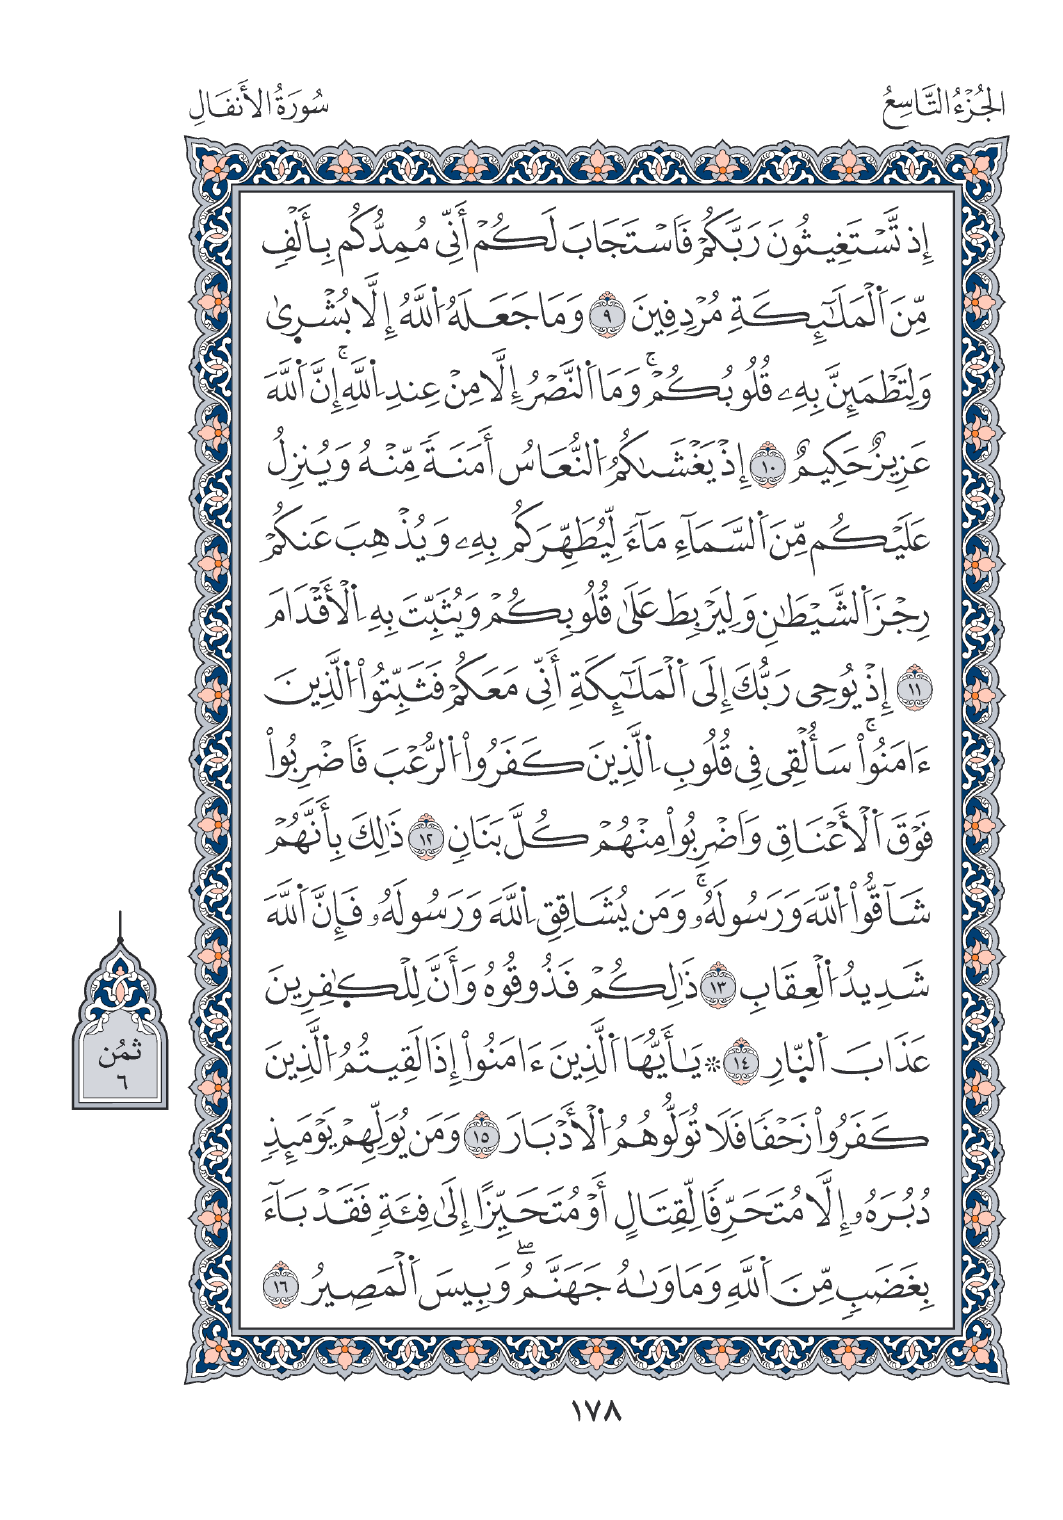 الجُزْءُ التَّاسِعُ
سُورَةُ الأَنفَالِ
إِذ تَّسْتَغِيثُونَ رَبَّكُمْ فَاَسْتَجَابَ لَكُمْ أَنِّي مُمِدُّكُم بِأَلْفٖ
مِّنَ اَ۬لْمَلَٰٓئِكَةِ مُرْدِفِينَ ٩ وَمَا جَعَلَهُ اُ۬للَّهُ إِلَّا بُشْر۪يٰ
وَلِتَطْمَئِنَّ بِهِۦ قُلُوبُكُمْۚ وَمَا اَ۬لنَّصْرُ إِلَّا مِنْ عِندِ اِ۬للَّهِۚ إِنَّ اَ۬للَّهَ
عَزِيزٌ حَكِيمٌ ١٠ إِذْ يَغْشَىٰكُمُ اُ۬لنُّعَاسُ أَمَنَةٗ مِّنْهُ وَيُنزِلُ
عَلَيْكُم مِّنَ اَ۬لسَّمَآءِ مَآءٗ لِّيُطَهِّرَكُم بِهِۦ وَيُذْهِبَ عَنكُمْ
رِجْزَ اَ۬لشَّيْطَٰنِ وَلِيَرْبِطَ عَلَىٰ قُلُوبِكُمْ وَيُثَبِّتَ بِهِ اِ۬لْأَقْدَامَ
١١ إِذْ يُوحِي رَبُّكَ إِلَى اَ۬لْمَلَٰٓئِكَةِ أَنِّي مَعَكُمْ فَثَبِّتُواْ اُ۬لَّذِينَ
ءَامَنُواْۚ سَأُلْقِي فِي قُلُوبِ اِ۬لَّذِينَ كَفَرُواْ اُ۬لرُّعْبَ فَاَضْرِبُواْ
فَوْقَ اَ۬لْأَعْنَاقِ وَاَضْرِبُواْ مِنْهُمْ كُلَّ بَنَانٖ ١٢ ذَٰلِكَ بِأَنَّهُمْ
شَآقُّواْ اُ۬للَّهَ وَرَسُولَهُۥۚ وَمَن يُشَاقِقِ اِ۬للَّهَ وَرَسُولَهُۥ فَإِنَّ اَ۬للَّهَ
شَدِيدُ اُ۬لْعِقَابِ ١٣ ذَٰلِكُمْ فَذُوقُوهُ وَأَنَّ لِلْكٰ۪فِرِينَ
عَذَابَ اَ۬لنّ۪ارِ ١٤ ۞ يَٰأَيُّهَا اَ۬لَّذِينَ ءَامَنُواْ إِذَا لَقِيتُمُ اُ۬لَّذِينَ
كَفَرُواْ زَحْفٗا فَلَا تُوَلُّوهُمُ اُ۬لْأَدْبَارَ ١٥ وَمَن يُوَلِّهِمْ يَوْمَئِذٖ
دُبُرَهُۥ إِلَّا مُتَحَرِّفٗا لِّقِتَالٍ أَوْ مُتَحَيِّزًا إِلَىٰ فِئَةٖ فَقَدْ بَآءَ
بِغَضَبٖ مِّنَ اَ۬للَّهِ وَمَاوَىٰهُ جَهَنَّمُۖ وَبِيسَ اَ۬لْمَصِيرُ ١٦
ثُمُن
٦
١٧٨